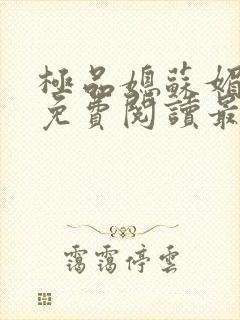 極品媳蘇媚
免費閱讀最
靄靄停雲